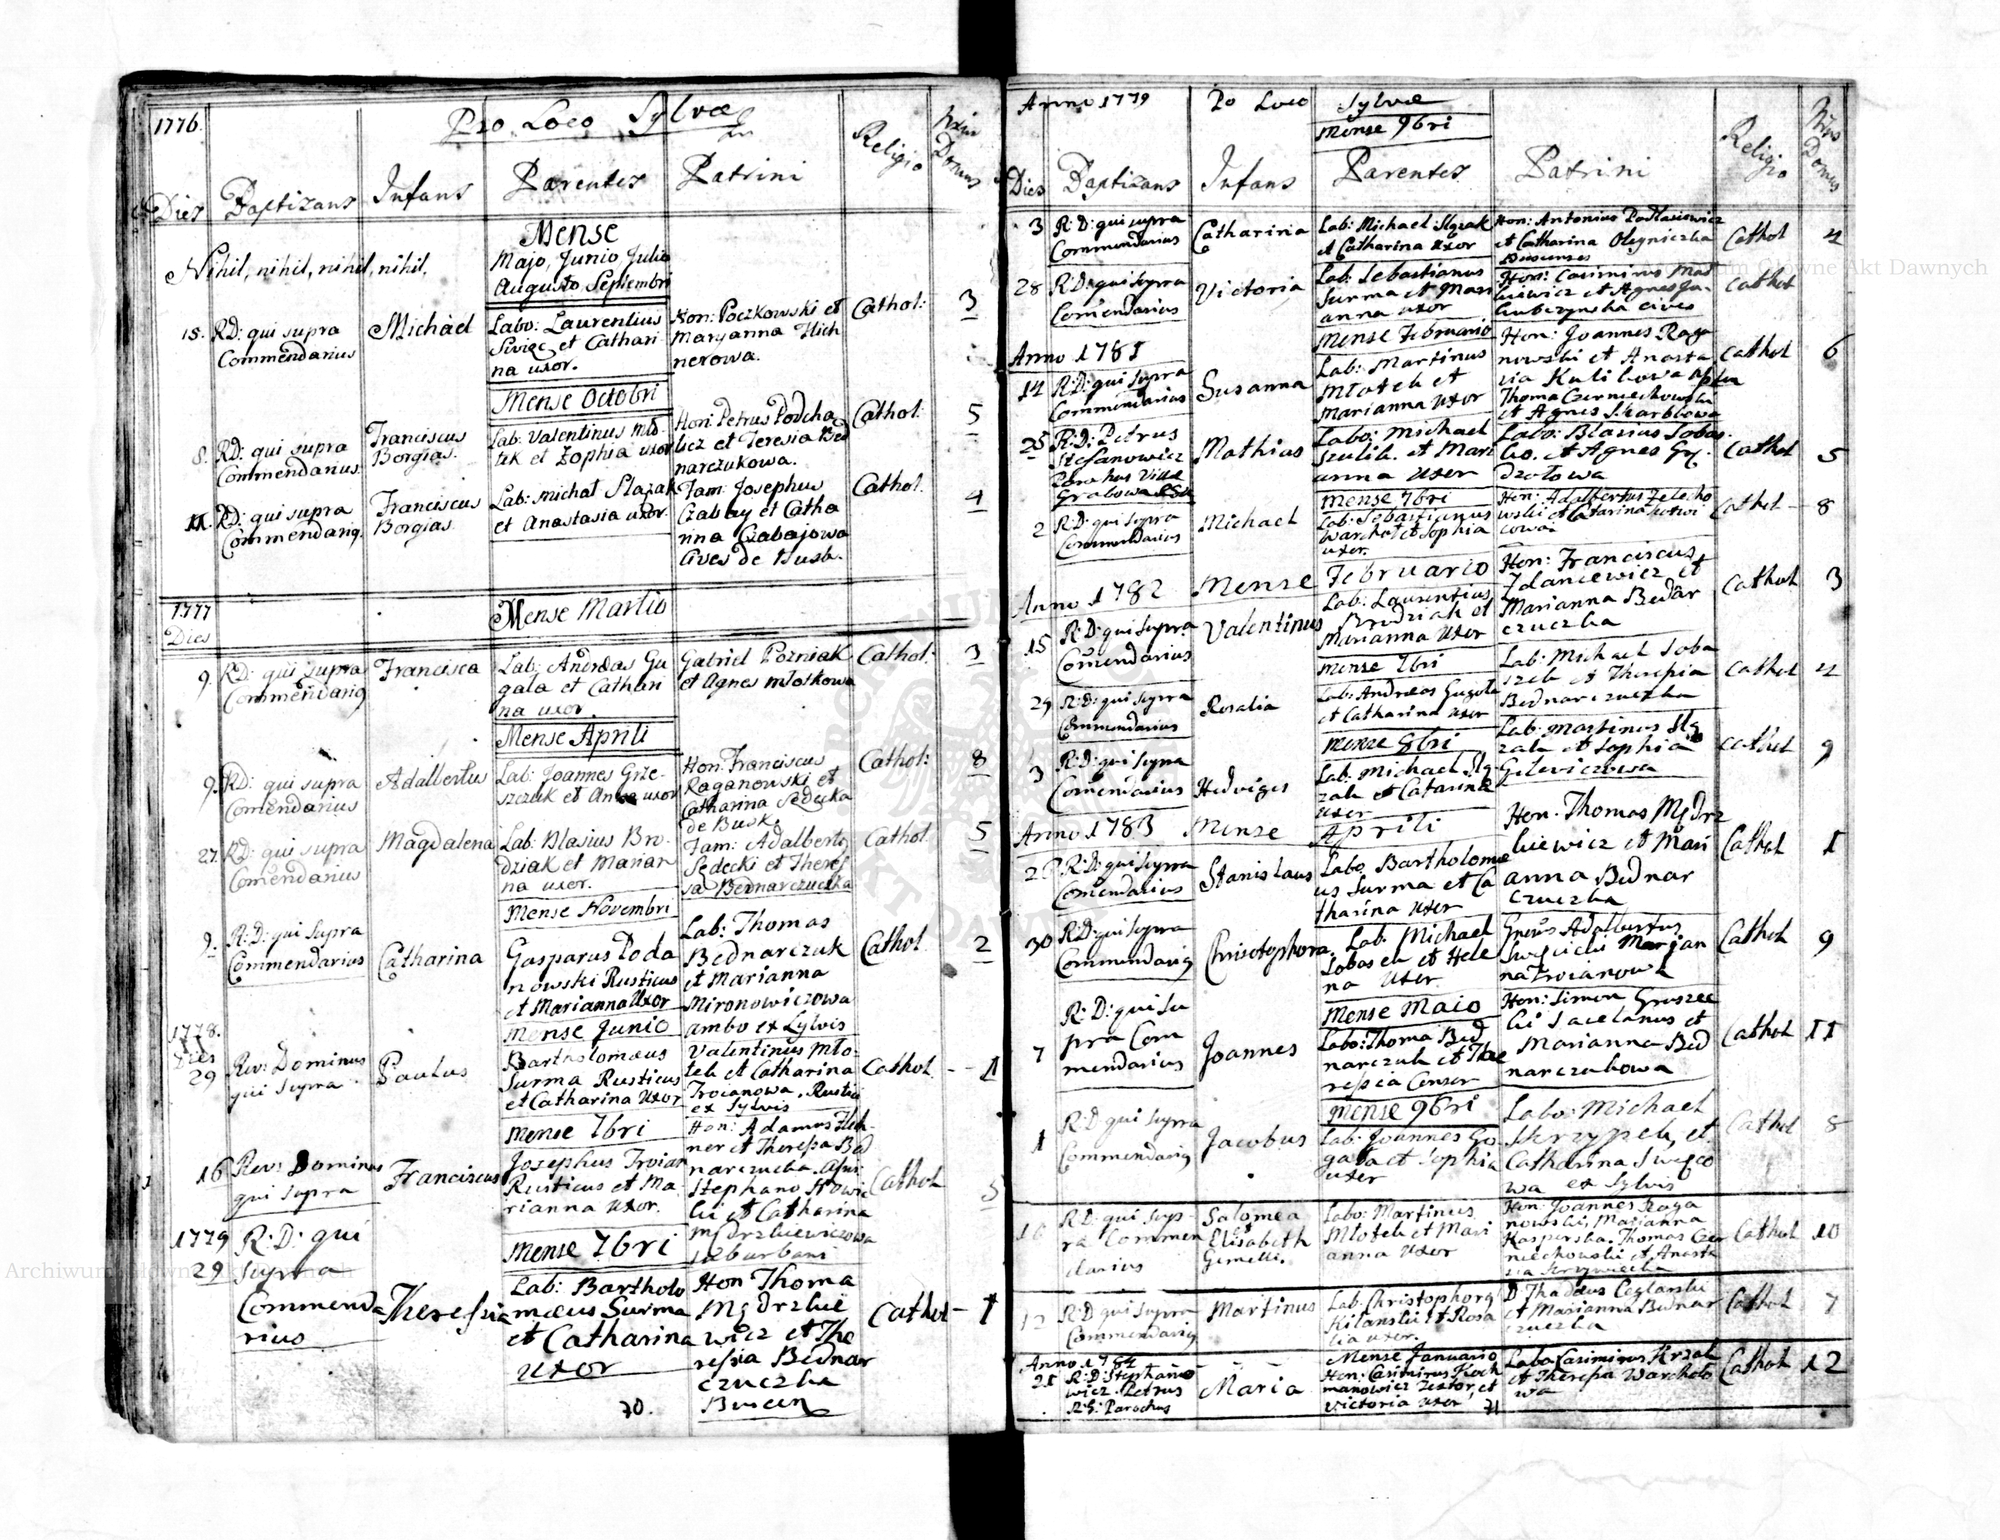 1776.
Pro Loco Sylvæ
Dies
Baptizans
Infans
Parentes
Patrini
Religio
Domus
Nihil, nihil, nihil, nihil,
Mense
Majo, Junio, Julio
Augusto, Septembri
15. RD: qui supra
Commendarius
Michael
Labo: Laurentius
et Cathari
na uxor.
Hon: Poczkowski et
Maryanna
nerowa.
Cathol:
3
Mense Octobri
8. RD: qui supra
Commendarius
Franciscus
Borgias.
Lab: Valentinus Mło-
tek et Zophia uxor
Hon: Petrus Podcha
licz et Teresia Bed
narczukowa.
Cathol:
5
11. RD: qui supra
Commendariq
Franciscus
Borgias
Lab: Michał Slązak
et Anastasia uxor
Fam: Josephus
Czabay et Catha
rina Czabajowa
Cives de Busk.
Cathol.
4
1777
Dies
Mense Martio
9. RD: qui supra
Commendariq
Francisca
Lab: Andreas Gu
gała et Cathari
na uxor.
Gabriel Pozniak
et Agnes Młoskowa
Cathol:
3
Mense Aprili
9. RD: qui supra
Comendarius
Adalbertus
Lab: Joannes Grze-
szczuk et Anna uxor
Hon: Franciscus
Raganowski et
Catharina Sedecka
de Busk
Cathol:
8
27. RD: qui supra
Comendarius
Magdalena
Lab: Blasius Bro-
dziak et Marian
na uxor.
Fam: Adalberto
Sedecki et Theres
sa Bednarczuczka
Cathol.
5
Mense Novembri
9. R:D: qui supra
Commendarius
Catharina
Gasparus Poda
nowski Rusticus
et Marianna Uxor
Lab: Thomas
Bednarczuk
et Marianna
Mironowiczowa
ambo ex Sylvis
Cathol.
2
1778.
Dies
Mense Junio
29
Rev: Dominus
qui supra
Paulus
Bartholomæus
Surma Rusticus
et Catharina Uxor
Valentinus Mło-
tek et Catharina
Troianowa. Rustici
ex Sylvis
Cathol.
1
Mense 7bri
16 Rev: Dominus
qui supra
Franciscus
Josephus Troian
Rusticus et Ma-
rianna Uxor.
Hon: Adamus
ner et Theressa Bed
narczucka. Assis
Stephano
ki et Catharina
Mędrzkiewiczowa
suburbani
Cathol
5
1779
29
R:D: qui
supra
Commenda
rius
Theressia
Mense 7bri
Lab: Bartholo
mæus Surma
et Catharina
uxor
Hon Thoma
Mędrzkie
wicz et The
ressia Bednar
czuczka
Buscen
Cathol - 1
70.
Anno 1779
Pro Loco
Sylvæ
Mense 9bri
Dies
Baptizans
Infans
Parentes
Patrini
Religio
Domus
3 R:D: qui supra
Commendarius
Catharina
Lab: Michael Slązak
et Catharina uxor
Hon: Antonius Podlasiowicz
et Catharina Olegniczka
Buscenses
Cathol
4
28 R:D: qui supra
Comendarius
Victoria
Lab: Sebastianus
Surma et Mari
anna uxor
Hon: Casimirus Mat
kiewicz et Agnes Ja-
kubczynska cives
Cathol
Anno 1781
Mense Februario
14 R:D: qui supra
Commendarius
Susanna
Lab: Martinus
Młotek et
Marianna Uxor
Hon: Joannes Raga
nowski et Anasta
sia Kulikowa
Thoma Czerniechowski
et Agnes Skarbkowa
Cathol
6
25 R:D: Petrus
Stefanowicz
Parochus Villæ
Grabowa
Mathias
Labo: Michael
Szulik et Mari
anna uxer
Labo: Blasius Sobas
ko. et Agnes
Cathol
5
Mense 7bri
2 R:D: qui supra
Commendarius
Michael
Lab: Sebastianus
Warchoł et Sophia
uxer.
Hon: Adalbertus Zelecho
wski et Catarina
cowa
Cathol
8
Anno 1782
Mense
Februario
15 R:D: qui supra
Comendarius
Valentinus
Lab: Laurentius
Brodziak et
Marianna Uxer
Hon: Franciscus
Zdancewicz et
Marianna Bednar
czuczka
Cathol
3
Mense 7bri
29 R:D: qui supra
Commendarius
Rosalia
Lab: Andreas Gugała
et Catharina Uxer
Lab: Michael Soba
szek et Theresia
Bednarczuczka
Cathol
4
Mense 8bri
3 R:D: qui supra
Comendarius
Hedviges
Lab: Michael Slą-
zak et Catarina
uxer
Lab: Martinus Slą
zak et Sophia
Gilewiczowa
Cathol
9
Anno 1783
Mense
Aprili
R:D: qui supra
Comendarius
Stanislaus
Labo Bartholome
us Surma et Ca
tharina Uxer
Hon. Thomas Mędrz
kiewicz et Mari
anna Bednar
czuczka
Cathol
1
30 R:D: qui supra
Commendariq
Christophora
Lab: Michael
Sobasek et Hele
na Uxer
Gnōs Adalbertus
Marian
na Troianowa
Cathol
9
Mense Maio
7
R:D: qui su
pra Com
mendarius
Joannes
Labo: Thoma Bed
narczuk et The
ressia Conser
Hon: Simon Groszec
ki Sacelanus et
Marianna Bed
narczukowa
Cathol
11
Mense 9bri
1
R:D qui supra
Commendariq
Jacobus
Lab: Joannes Go
gała et Sophia
uxer
Labo: Michael
Skrzypek, et
Catharina Swięco
wa ex Sylvis
Cathol
8
R:D: qui sup-
ra Commen
darius
Salomea
Elisabeth
Gemelli.
Labo: Martinus
Młotek et Mari
anna Uxer
Hon: Joannes Raga
nowski, Marianna
Kasperska. Thomas Czer
niechowski et Anasta
sia
Cathol
10
12 R:D qui supra
Commendariq
Martinus
Lab: Christophorq
Kilanski et Rosa
lia uxer.
D Thadæus Ceglarski
et Marianna Bednar
czuczka
Cathol
7
Anno 1784
Mense Januario
21 R:D: Stephano
wicz Petrus
R:G: Parochus
Maria
Hon: Casimirus Koch
manowicz Textor, et
Victoria uxer
Labo: Casimirus Krzak
et Theressa Warcholo
wa
Cathol
12
71
Archiwum Główne Akt Dawnych